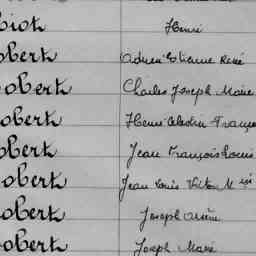 Henri
obert Adrien Etienne René
obert Charles Joseph Marie
obert Henri Celestin Franço
obert Jean François Louis
obert Jean Louis Victor M
obert Joseph
obert Joseph Marie